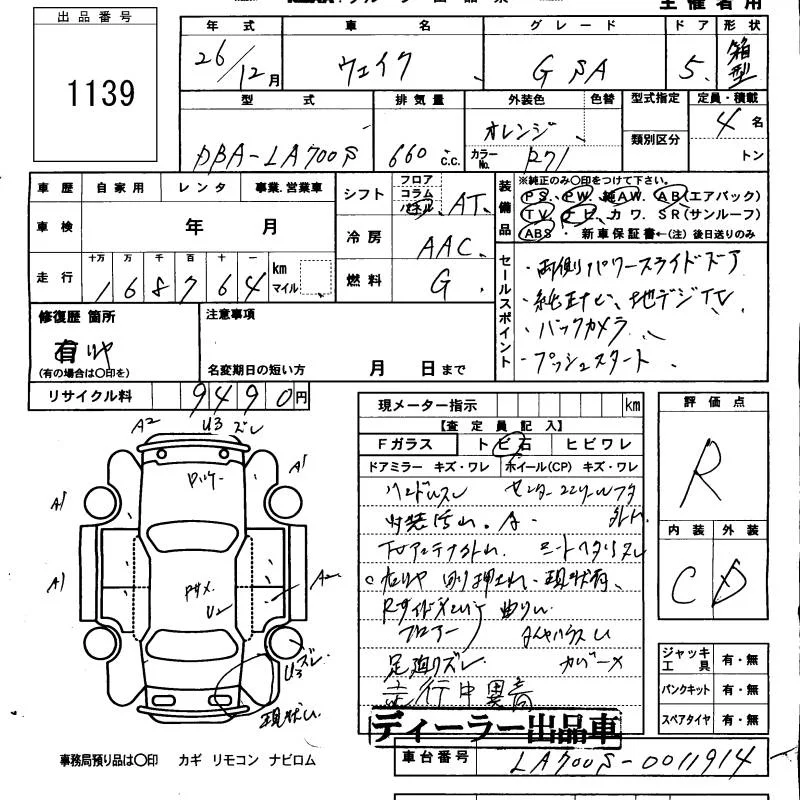 出品番号
1139
主催者用
年式 車名 グレード ドア 形状
26/12月 ウェイク GSA 5 箱型
型式 排気量 外装色 色替 型式指定 定員・積載
DBA-LA700S 660 c.c. オレンジ 類別区分 4名
カラーNo. R71 トン
車歴 自家用 レンタ 事業.営業車
車検 年 月
走行 十万 万 千 百 十 一 km マイル
168764
シフト フロア コラム パネル AT
冷房 AAC
燃料 G
装備品
※純正のみ○印をつけて下さい。
PS. PW. 純AW. AB(エアバック)
TV ナビ カワ. SR(サンルーフ)
ABS・新車保証書←(注) 後日送りのみ
セールスポイント
・両側パワースライドドア
・純正ナビ、地デジTV
・バックカメラ
・プッシュスタート
修復歴 箇所
有 リヤ
(有の場合は○印を)
注意事項
名変期日の短い方 月 日まで
リサイクル料 9490円
現メーター指示 km
【査定員記入】
Fガラス トビ石 ヒビワレ
ドアミラー キズ・ワレ ホイール(CP) キズ・ワレ
ハンドルスレ
内装汚れ。
TVアンテナ外れ. シートヘタリスレ
右リヤ 現状有
曲り
フロアー
足廻りズレ
走行中異音
ディーラー出品車
評価点
R
内装 外装
C D
ジャッキ工具 有・無
パンクキット 有・無
スペアタイヤ 有・無
A2 U3 ズレ
A1 A1
A1 A2
U2
U3 ズレ
事務局預り品は○印 カギ リモコン ナビロム
車台番号 LA700S-0011914